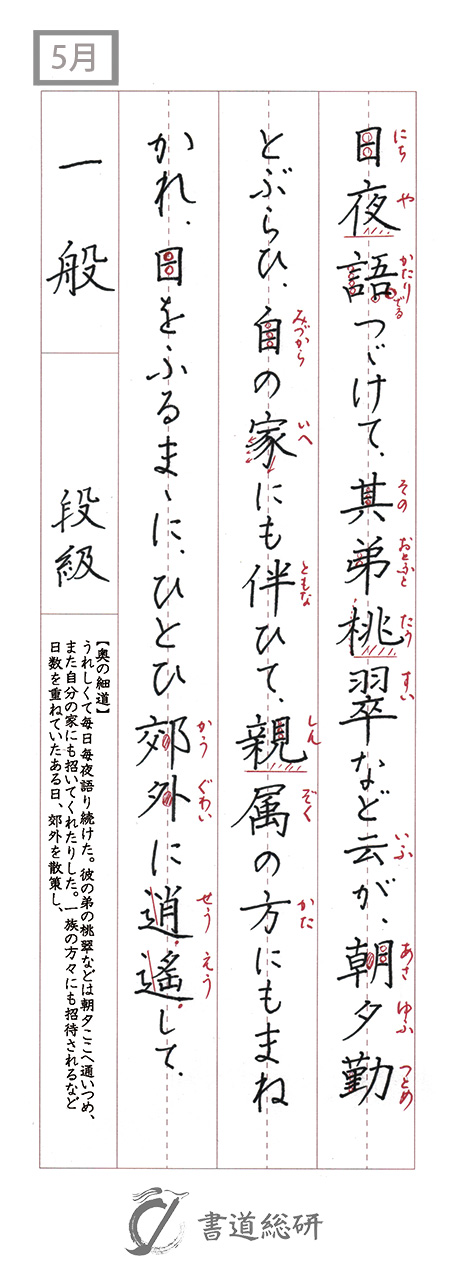 5月
日夜語つゞけて、其弟桃翠など云が、朝夕勤
にち や かたり でる その おとふと たう すい いふ あさ ゆふ つとめ
とぶらひ、自の家にも伴ひて、親属の方にもまね
みづから いへ ともな しん ぞく かた
かれ、日をふるまゝに、ひとひ郊外に逍遙して、
かう ぐわい せう えう
一般
段級
【奥の細道】
うれしくて毎日毎夜語り続けた。彼の弟の桃翠などは朝夕ここへ通いつめ、
また自分の家にも招いてくれたりした。一族の方々にも招待されるなど
日数を重ねていたある日、郊外を散策し、
書道総研